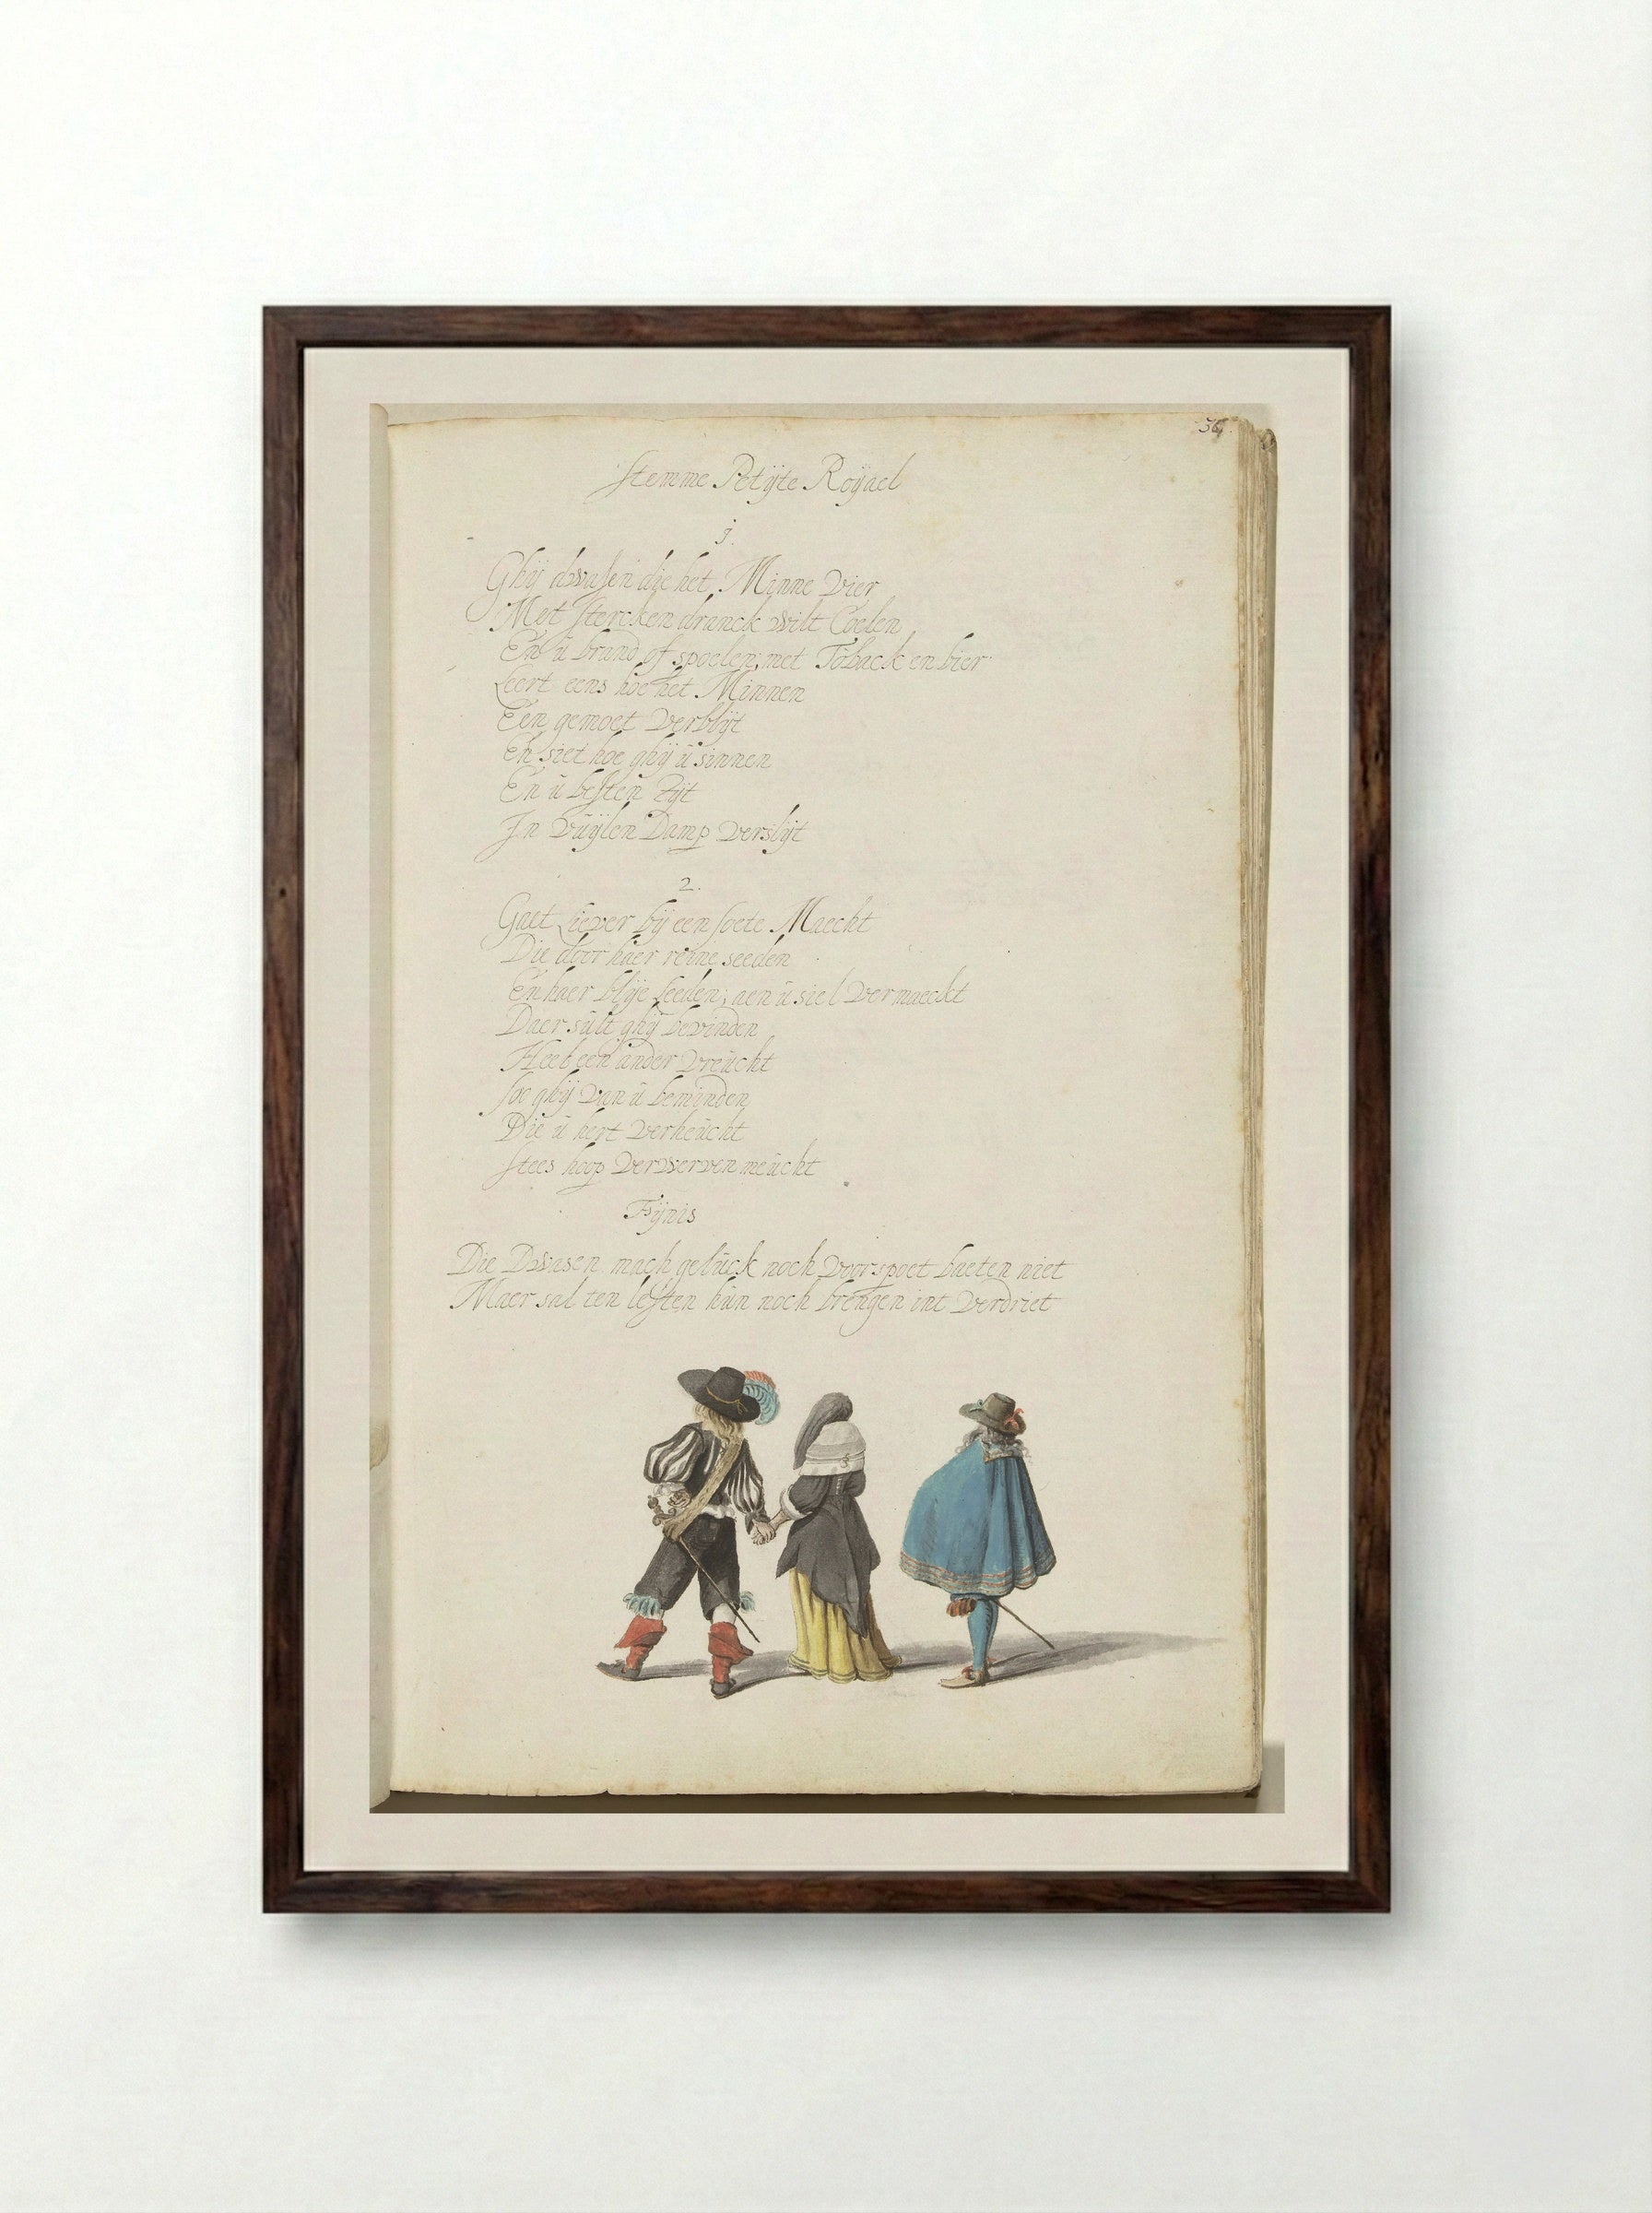 36
Stemme Petijte Roijael
1.
Ghij dwasen die het Minne Vier
Met stercken dranck wilt Coelen
En ū brand of spoelen; met Toback en bier
Leert eens hoe het Minnen
Een gemoet Verblijt
En siet hoe ghij ū sinnen
En ū besten Zijt
In Vūijlen Damp Verslijt
2.
Gaet Liever bij een soete Maecht
Die door haer reine seeden
En haer blije Leeden; aen ū siel Vermaeckt
Daer sūlt ghij bevinden
Heel een ander Vreūcht
soo ghij Van ū beminden
Die ū hert Verheūcht
stees hoop Verwerven meūcht
Fijnis
Die Dwasen mach gelūck noch Voorspoet baeten niet
Maer sal ten lesten hūn noch brengen int Verdriet